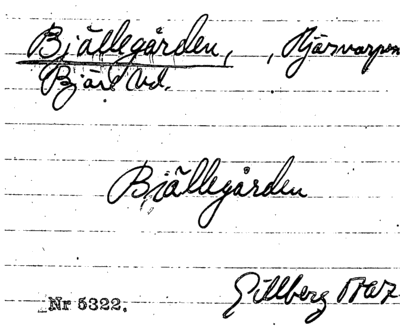 Bjällegården, , Hjärsvarpen
Bjäre
Bjällegården
Nr 5322. Gillberg